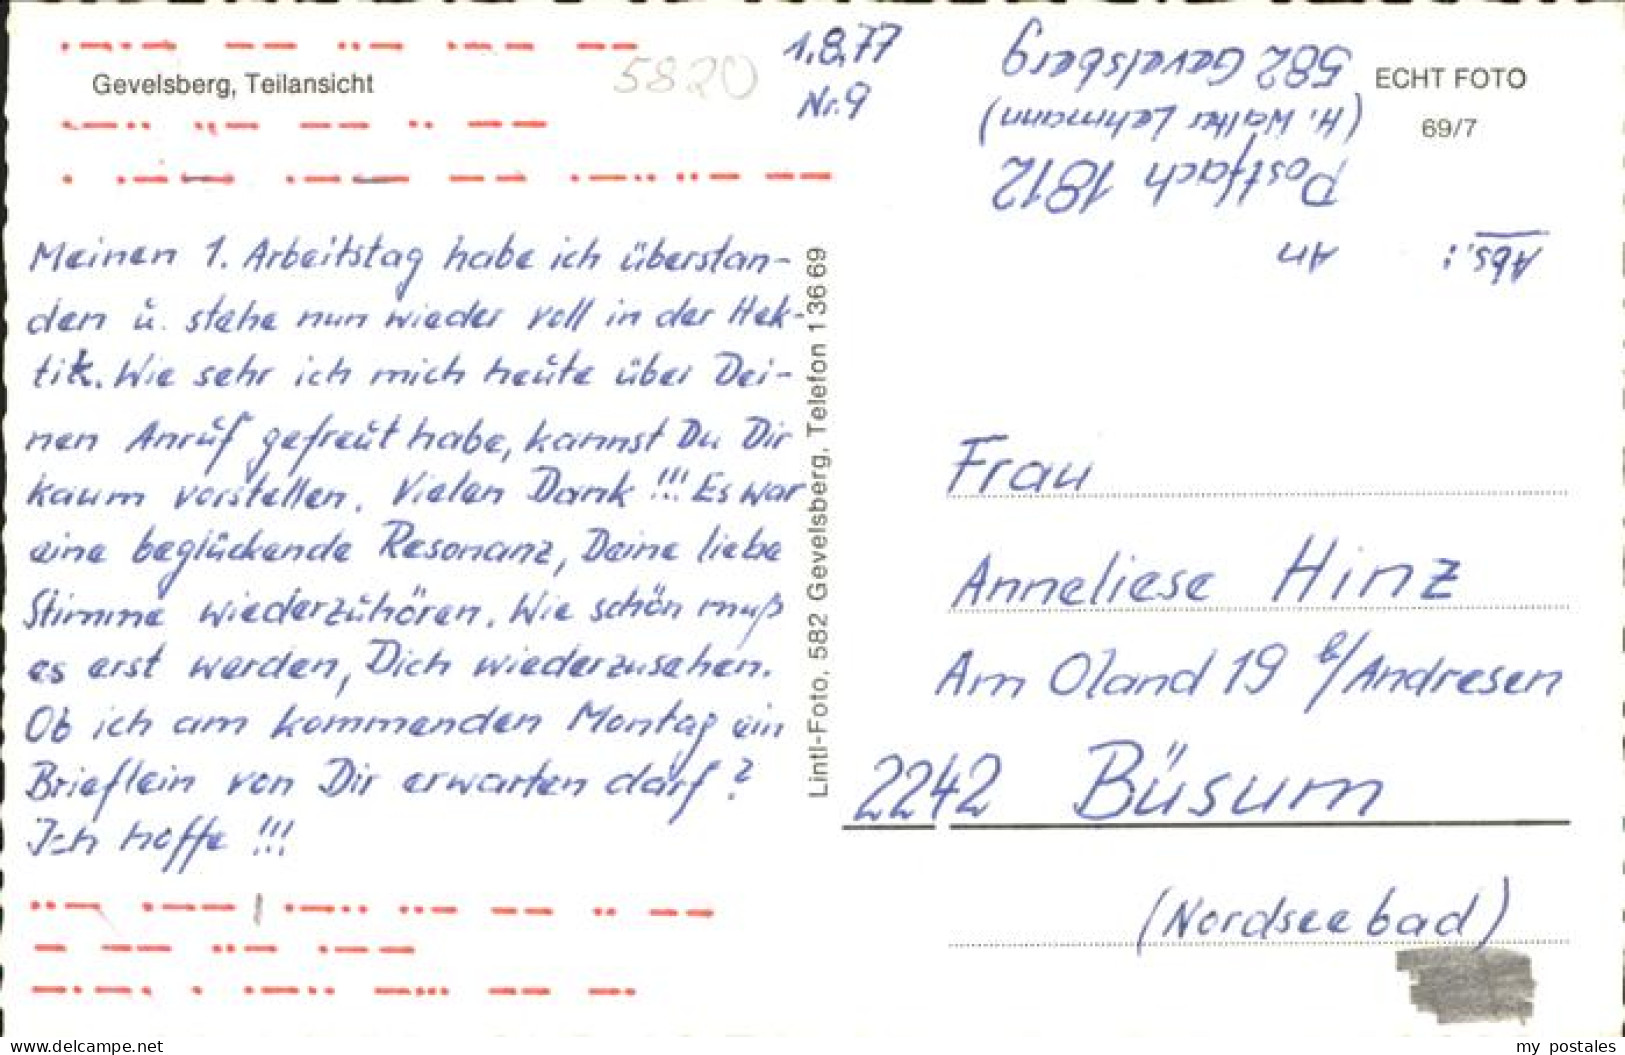 Gevelsberg, Teilansicht
5820
1.8.77
Nr. 9
ECHT FOTO
69/7
Abs.: An
Postfach 1812
(H. Walter Lehmann)
582 Gevelsberg
Meinen 1. Arbeitstag habe ich überstan-
den u. stehe nun wieder voll in der Hek-
tik. Wie sehr ich mich heute über Dei-
nen Anruf gefreut habe, kannst Du Dir
kaum vorstellen. Vielen Dank!!! Es war
eine beglückende Resonanz, Deine liebe
Stimme wiederzuhören. Wie schön muß
es erst werden, Dich wiederzusehen.
Ob ich am kommenden Montag ein
Brieflein von Dir erwarten darf?
Ich hoffe!!!
Lintl-Foto, 582 Gevelsberg, Telefon 13669
Frau
Anneliese Hinz
Am Oland 19 b/Andresen
2242 Büsum
(Nordseebad)
www.delcampe.net
my_postales